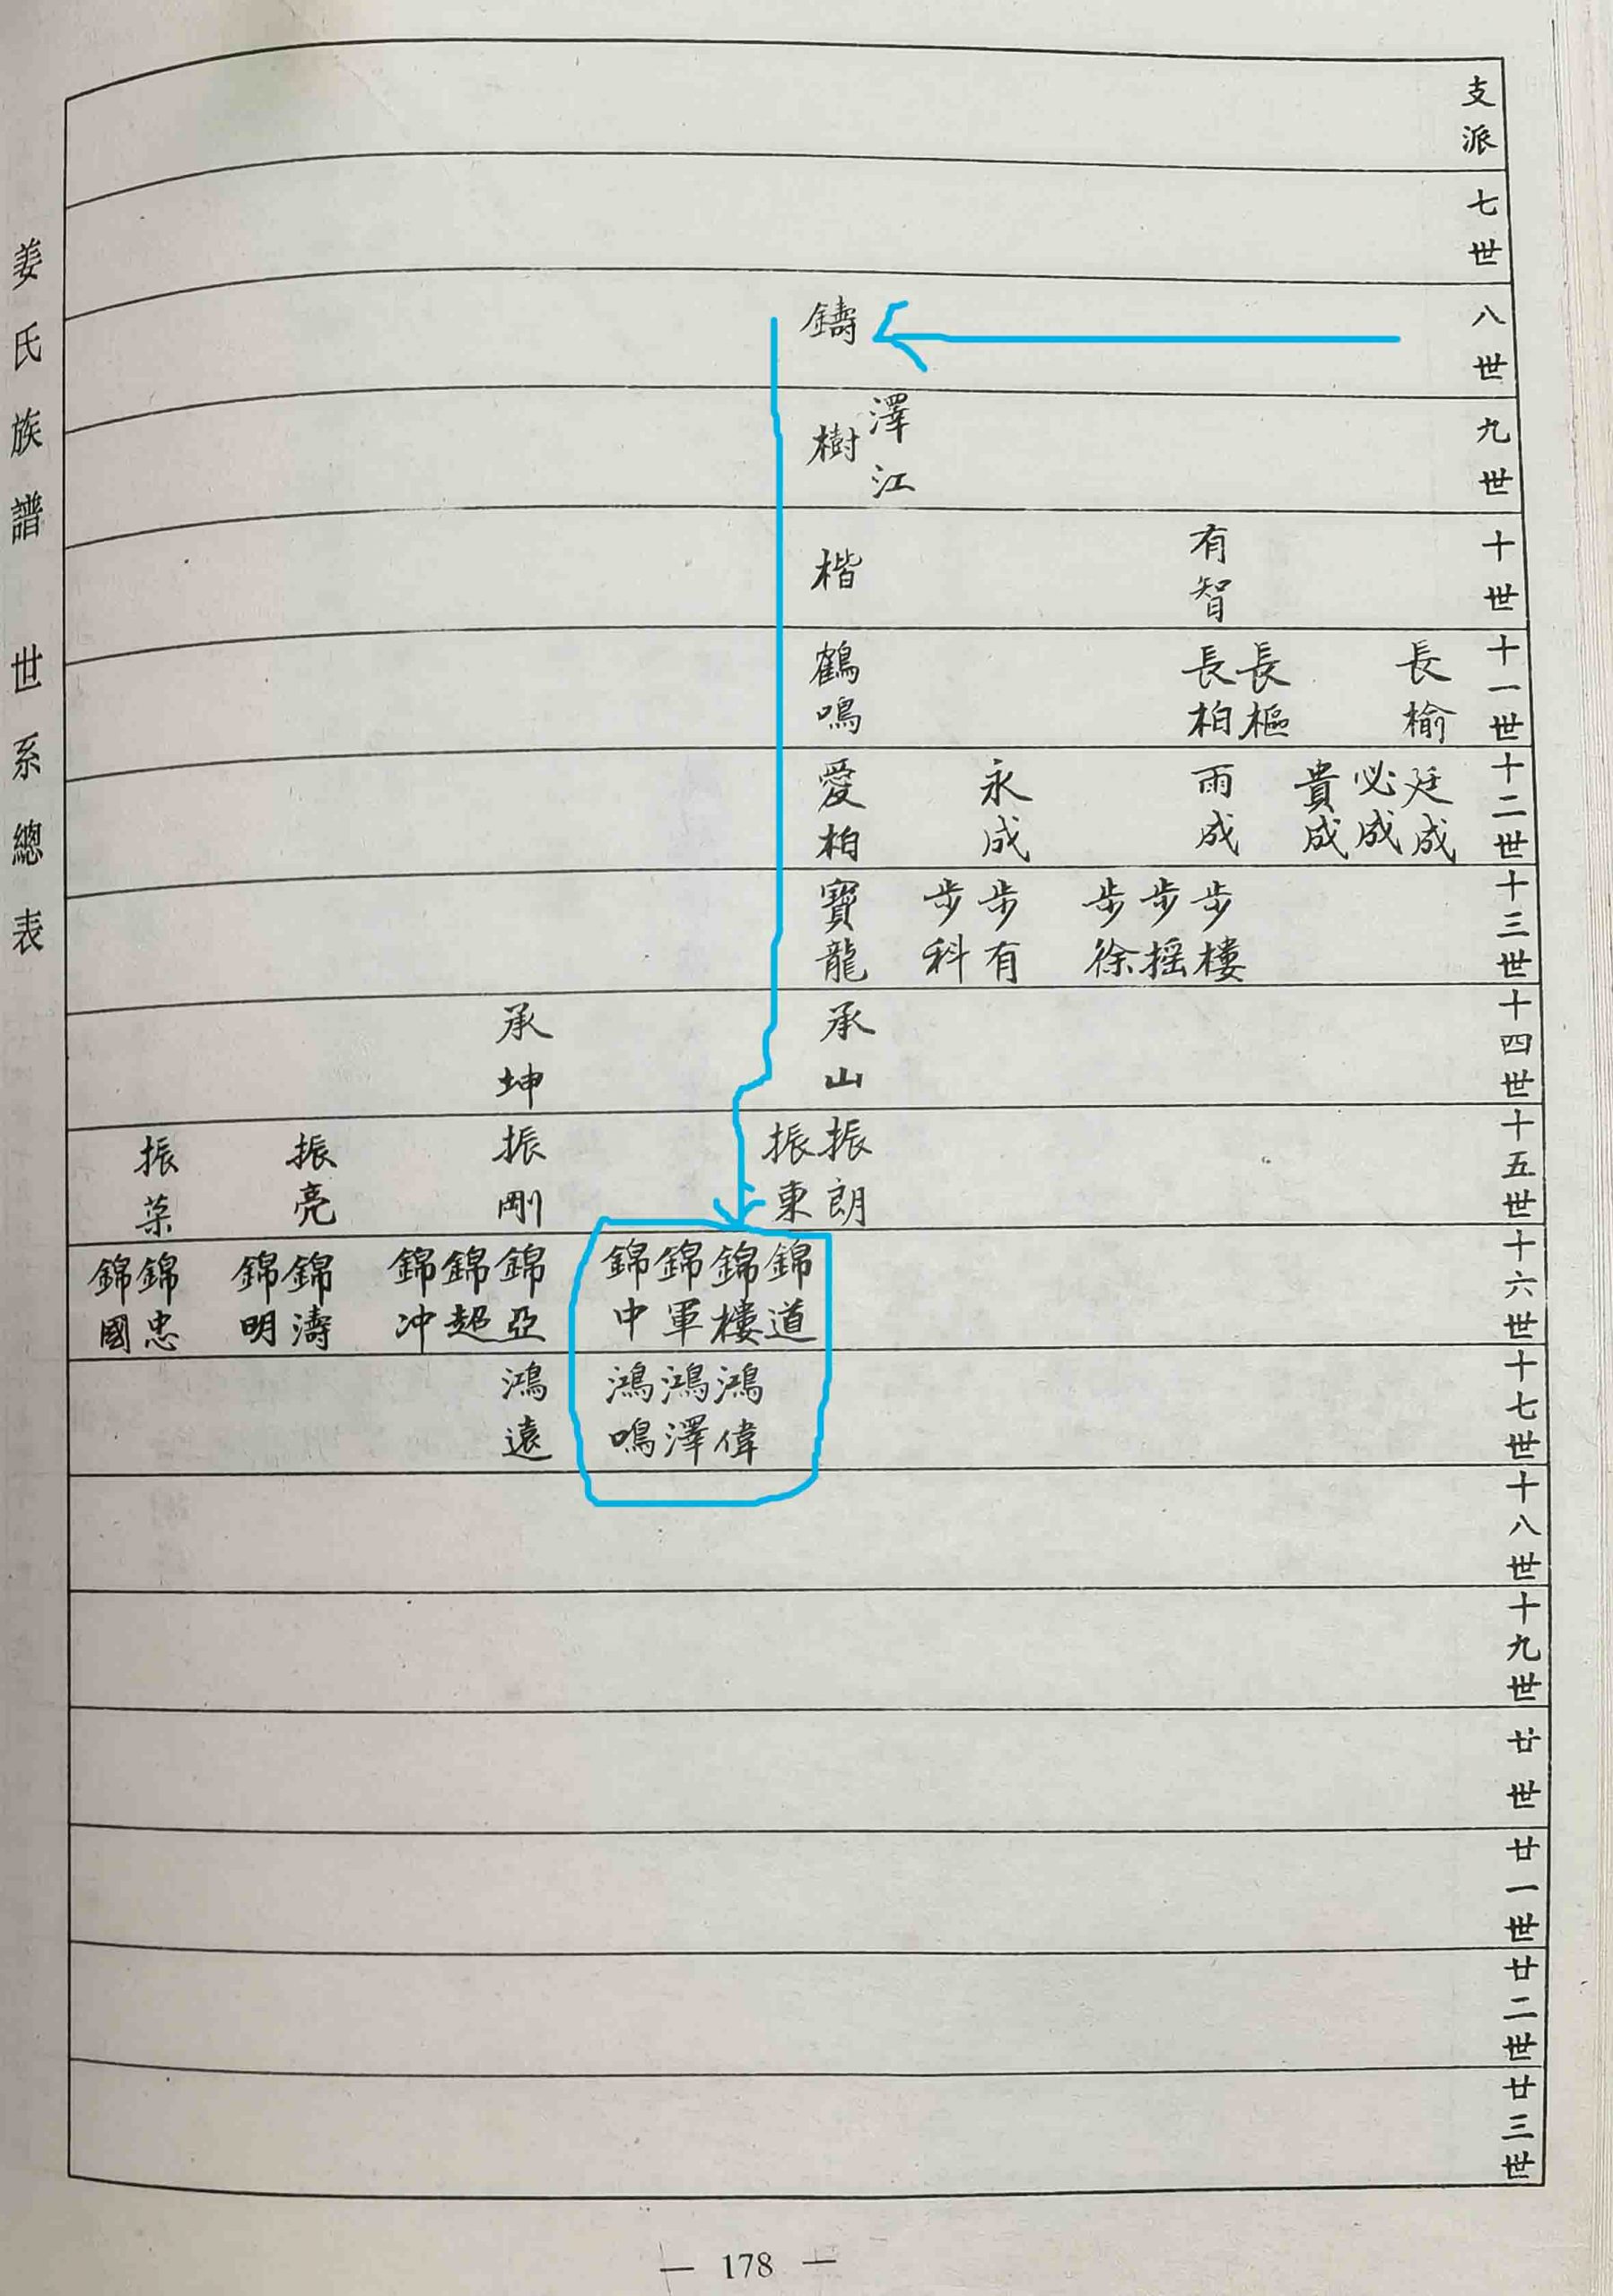 支派
七世
八世
鑄
九世
澤江
樹
十世
有智
楷
十一世
長榆
長樞
長柏
鶴鳴
十二世
廷成
必成
貴成
雨成
永成
愛柏
十三世
步樓
步摇
步徐
步有
步科
寶龍
十四世
承山
承坤
十五世
振朗
振東
振剛
振亮
振菜
十六世
錦道
錦樓
錦軍
錦中
錦亞
錦超
錦冲
錦濤
錦明
錦忠
錦國
十七世
鴻偉
鴻澤
鴻鳴
鴻遠
十八世
十九世
廿世
廿一世
廿二世
廿三世
姜氏族譜 世系總表
— 178 —